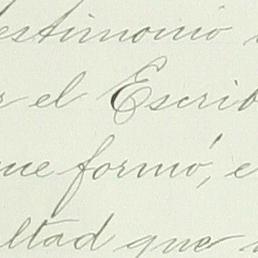 testimonio
r el Escrib
que formó, e
ultad que